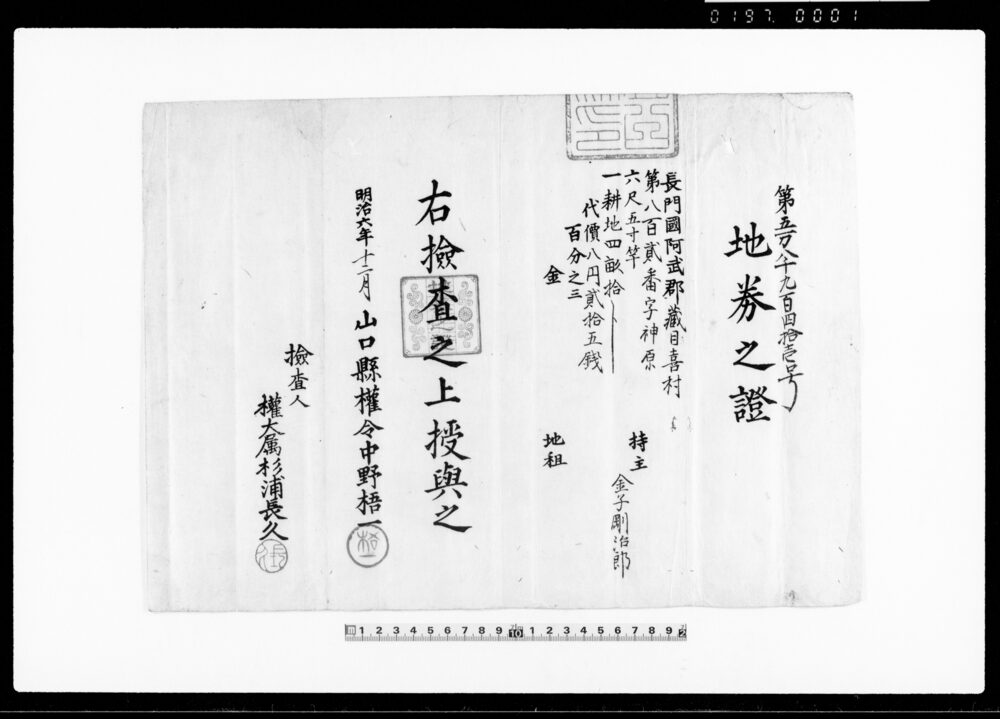 0197 0001
第五万八千九百四拾壱号
地券之證
長門國阿武郡藏目喜村
第八百貳番字神原
六尺五寸竿
持主 金子剛治郎
一耕地四畝拾
代價八円貳拾五錢
百分之三
金
地租
右撿査之上授與之
明治六年十二月 山口縣權令中野梧一
撿査人
權大属杉浦長久
1 2 3 4 5 6 7 8 9 10 1 2 3 4 5 6 7 8 9 2